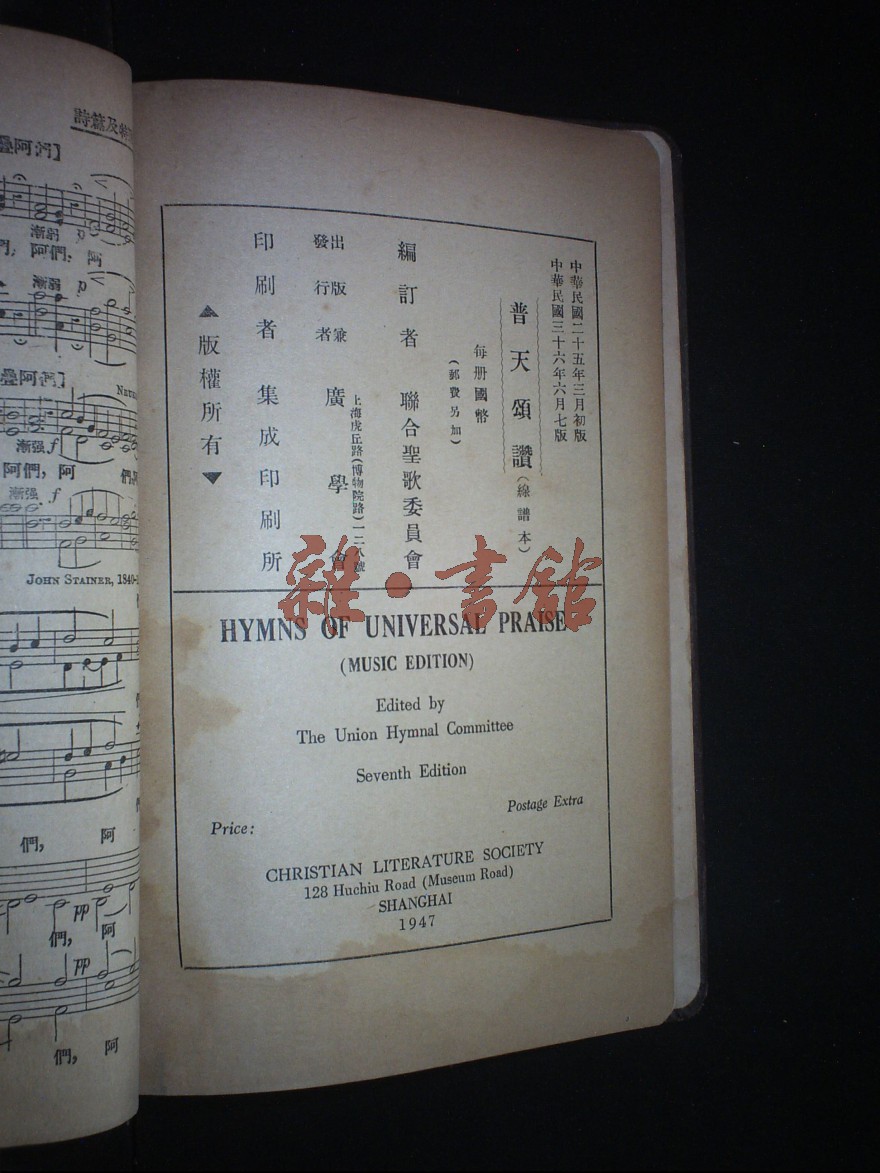 疊阿們]
漸弱 p
們, 阿們, 阿
漸弱 p
疊阿們]
漸强 f
阿們, 阿
漸强 f
JOHN STAINER, 1840-
們, 阿
pp
們, 阿
pp
們, 阿
中華民國二十五年三月初版
中華民國三十六年六月七版
普天頌讚(線譜本)
每册國幣
(郵費另加)
編訂者 聯合聖歌委員會
出版兼
發行者 廣學會
上海虎丘路(博物院路)一二八號
印刷者 集成印刷所
▲版權所有▼
雜·書館
HYMNS OF UNIVERSAL PRAISE
(MUSIC EDITION)
Edited by
The Union Hymnal Committee
Seventh Edition
Postage Extra
Price:
CHRISTIAN LITERATURE SOCIETY
128 Huchiu Road (Museum Road)
SHANGHAI
1947